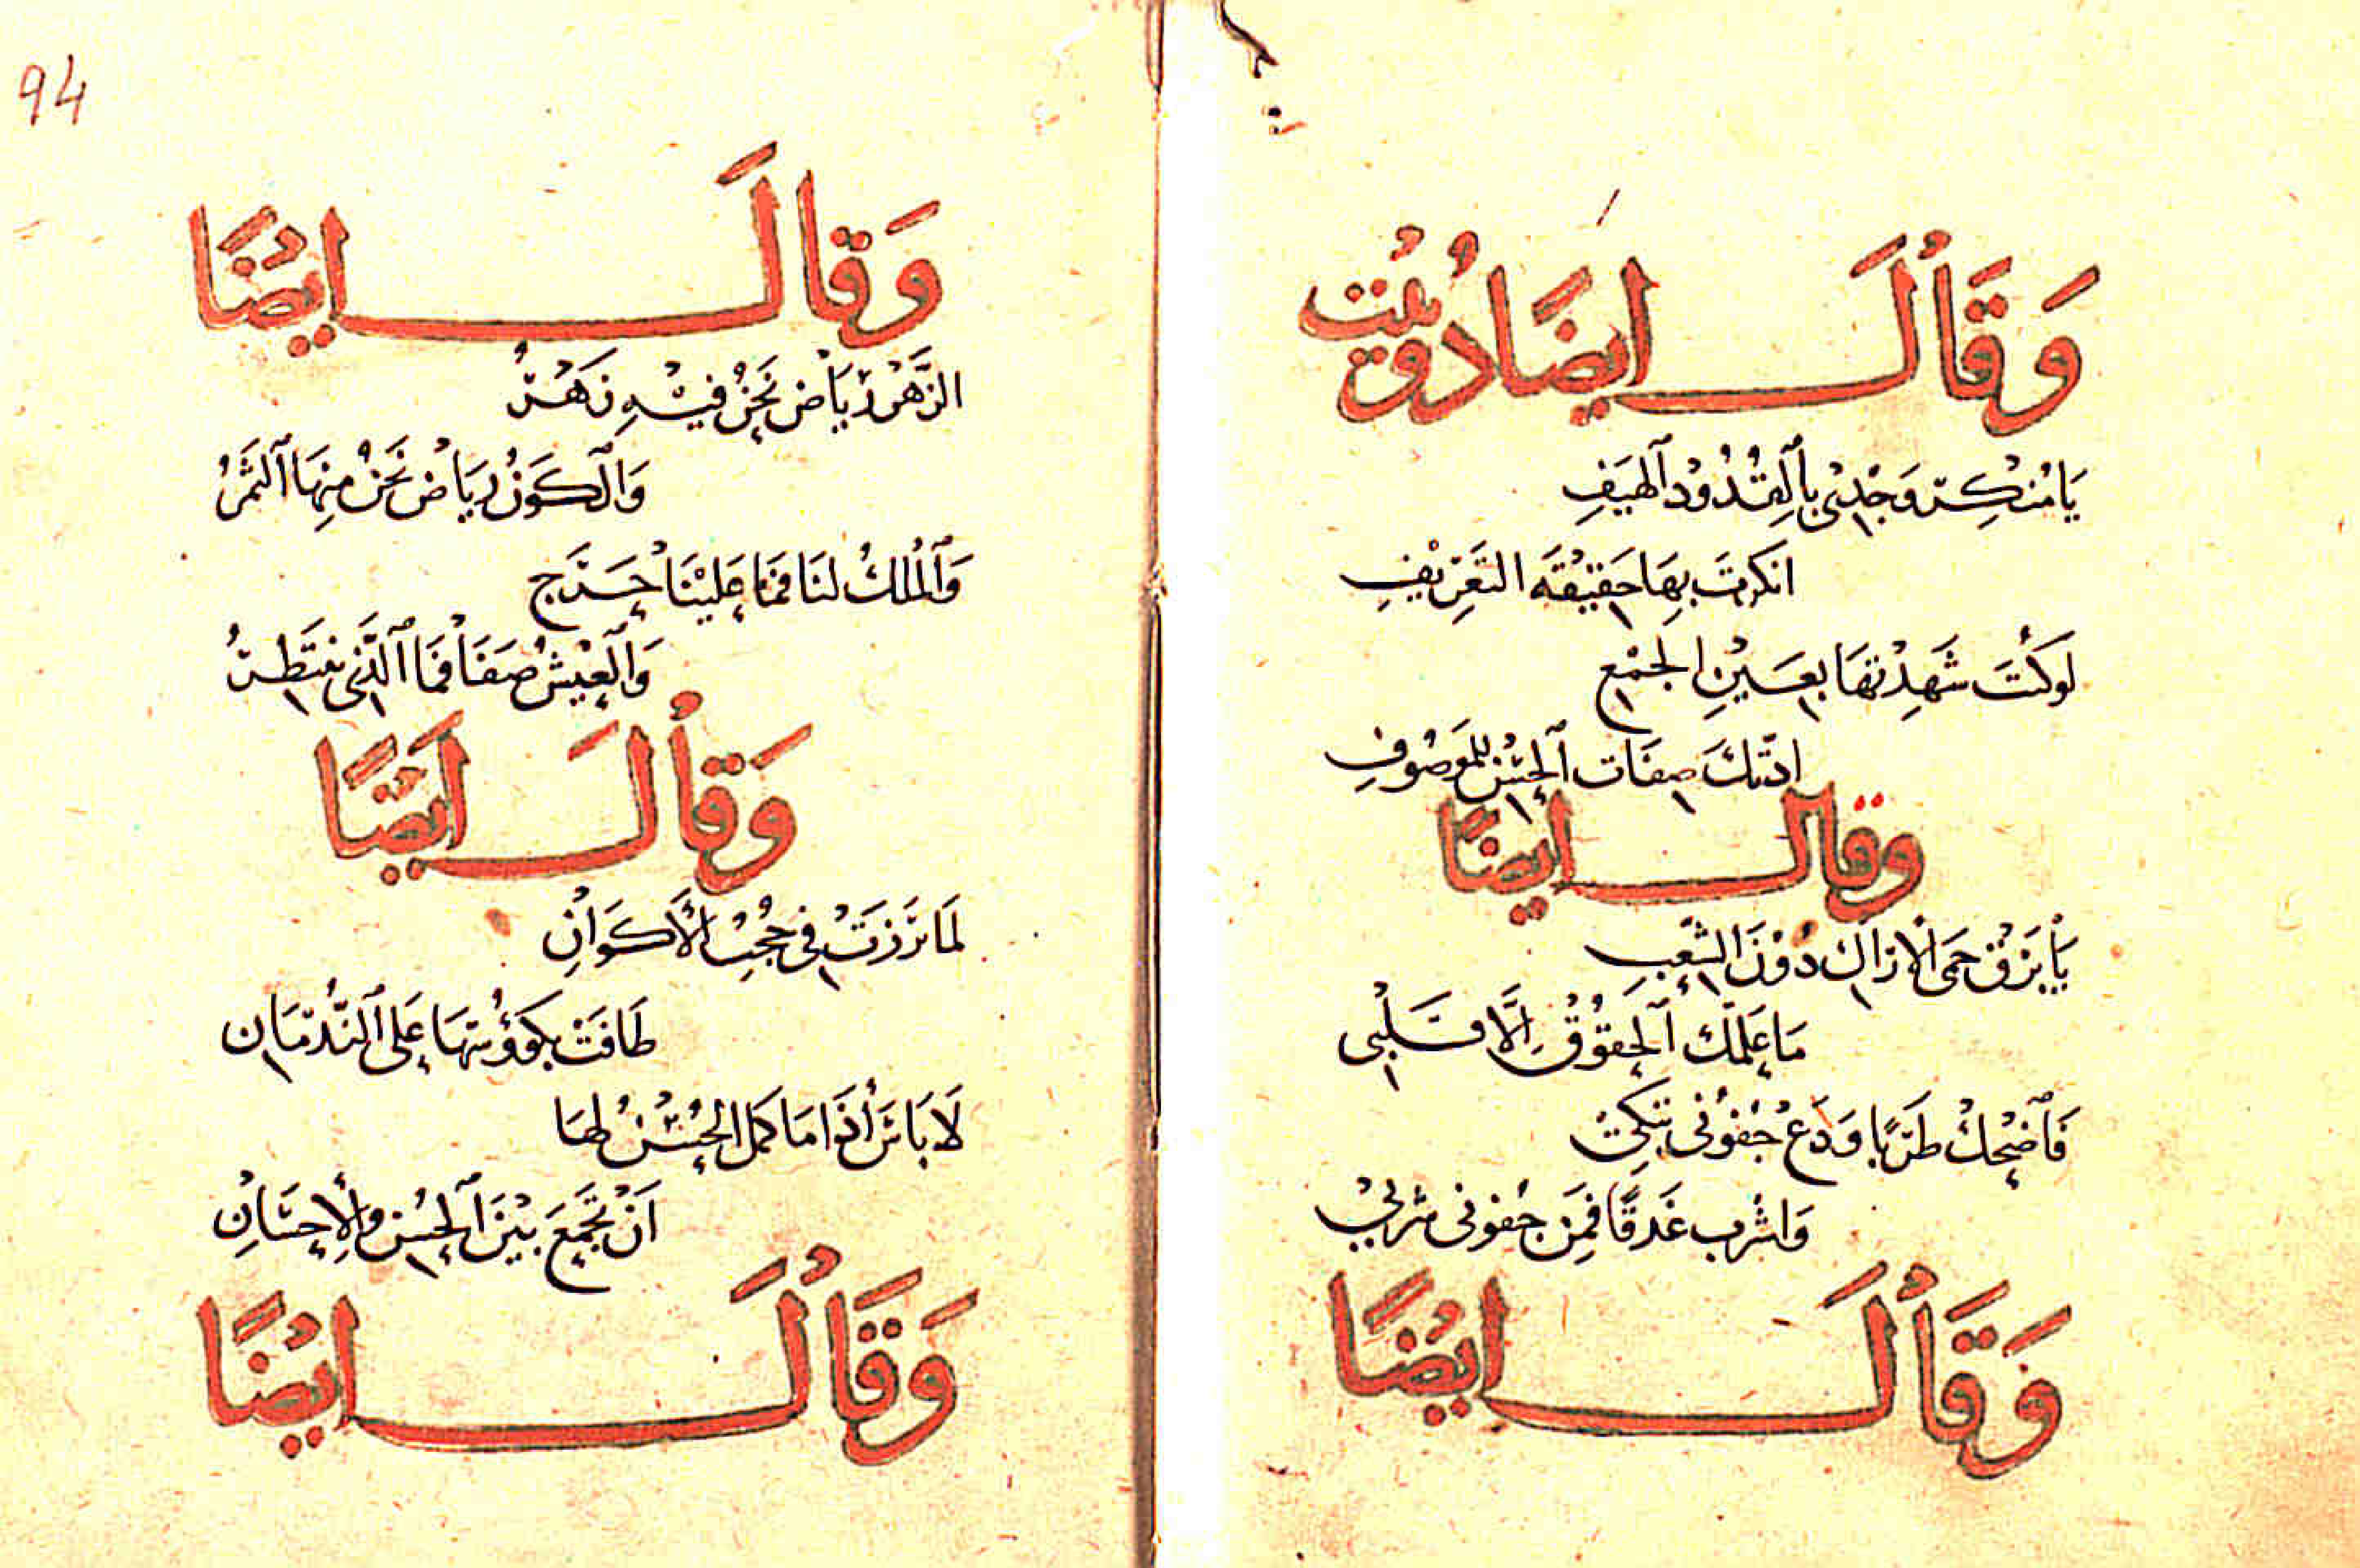 وَقَالَ ايضَا دوبيت
يَا مُنكِر وَجْدِى بِالْقُدُوْدِ ٱلهَيَفِ
انكرتَ بِهَا حَقيْقَه التَّعَرْيفِ
لَو كُنْتَ شَهِدْتهَا بعَيْنِ الجمْعِ
ادّتكَ صِفَات ٱلحُسْن للمَوصُوفِ
وقال ايضًا
يَا بَرَقْ حمَى الْاراك دُوْنَ الشّعْبِ
مَا عَلمَّك ٱلخفُوْقِ اِلَّا قَلْبْى
فَٱضْحكْ طَرَبًا وَدَعْ جُفوْنى تبَكىْ
وَاشرب غَدقًا فمَن جفونى شربىْ
وَقَالَ ايْضًا
94
وَقَالَ ايْضًا
الزَّهْر رْيَاض نَحَنُ فيْهِ زَهْرُ
وَالْكَوَنُ ريَاض نَحَنُ مِنهَا ٱلثمَّرُ
وَٱلْمُلكُ لنَا فمَا عَليْنَا حَرَج
وَٱلْعيْشُ صَفَا فمَا ٱلَّذى نَنتَظرُ
وَقَالَ ايْضًا
لمَا بَرَزتْ فى حُجبْ الْأكوَانِ
طَافَتْ بكؤُسهَا عَلى ٱلنَّدْمَان
لَا بَاسَ اذَا مَا كمَل الحُسْنُ لهَا
اَنْ تجَمَعَ بيْنَ ٱلحُسْن والْإحسَانِ
وَقَالَ ايْضًا